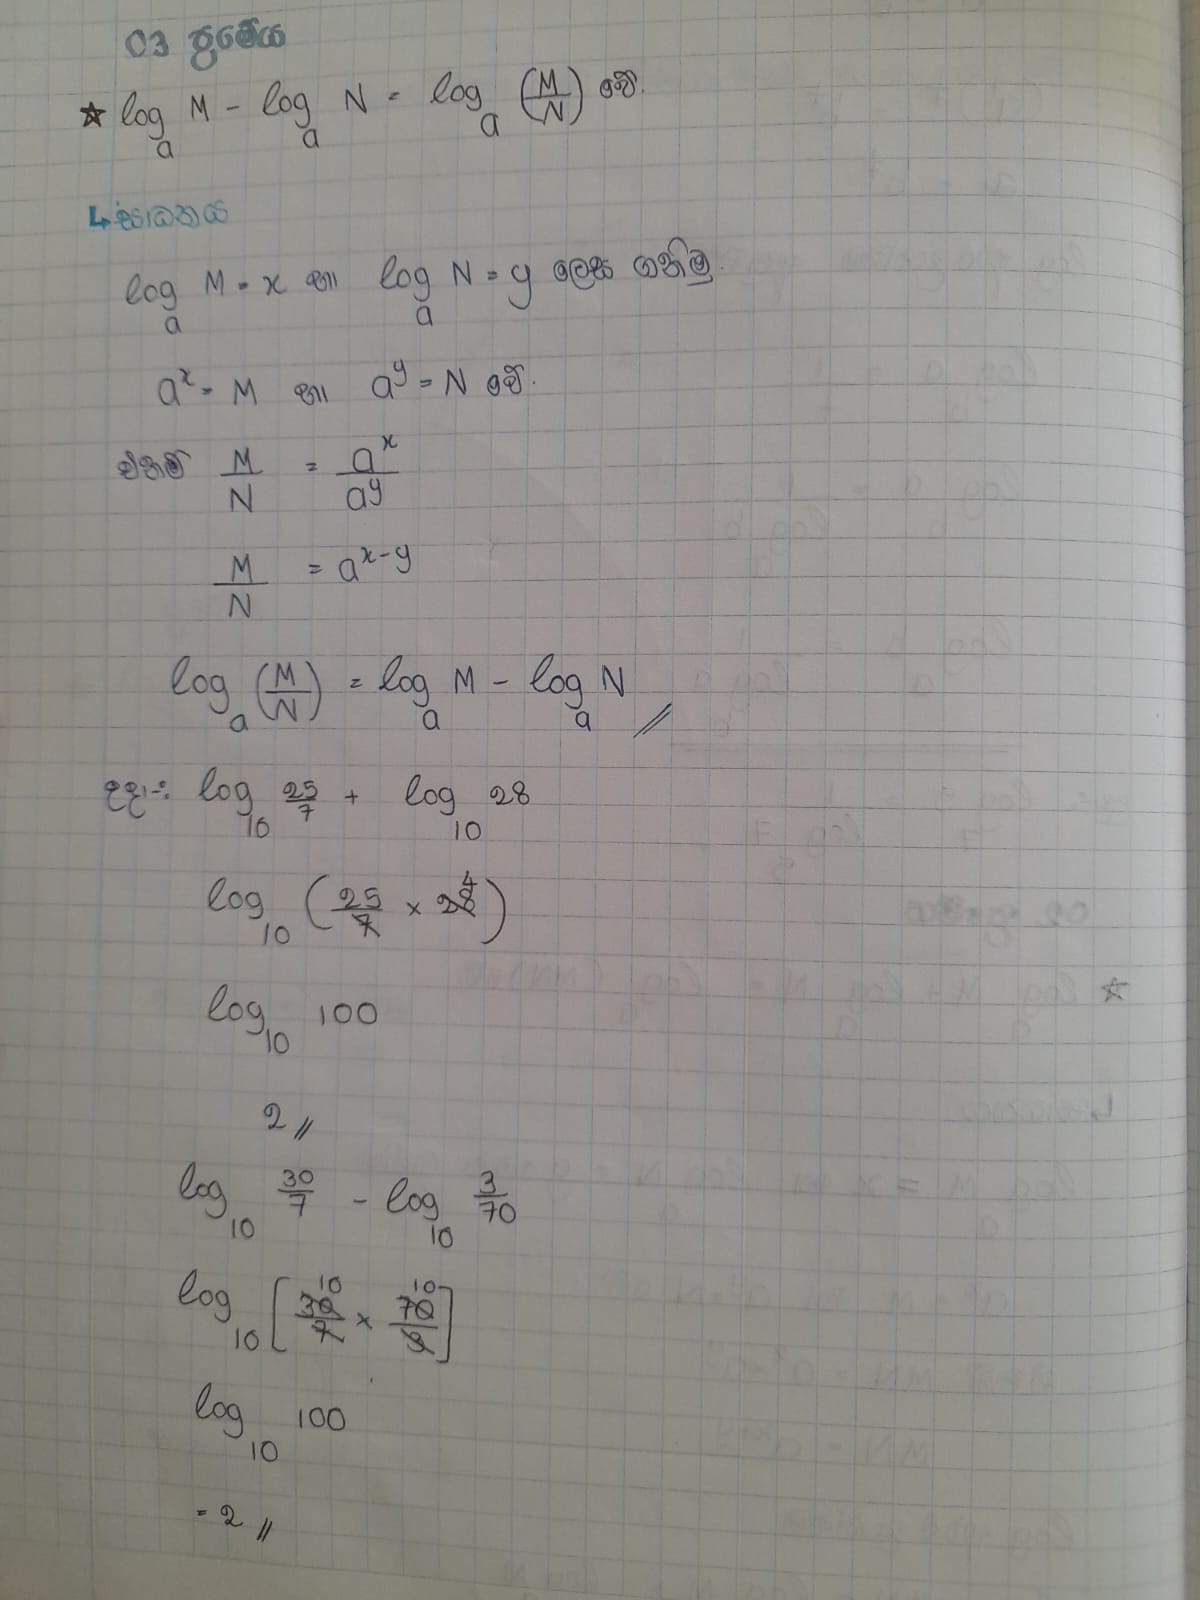 03 ප්‍රමේය
☆ log_a M - log_a N = log_a (M/N) වේ.
↳ සාධනය
log_a M = x හා log_a N = y ලෙස ගනිමු.
a^x = M හා a^y = N වේ.
එනම් M/N = a^x/a^y
M/N = a^(x-y)
log_a (M/N) = log_a M - log_a N //
උදා:- log_10 25/7 + log_10 28
log_10 (25/7 × 28) 4
log_10 100
2 //
log_10 30/7 - log_10 3/70
log_10 [30/7 × 70/3] 10 10
log_10 100
= 2 //